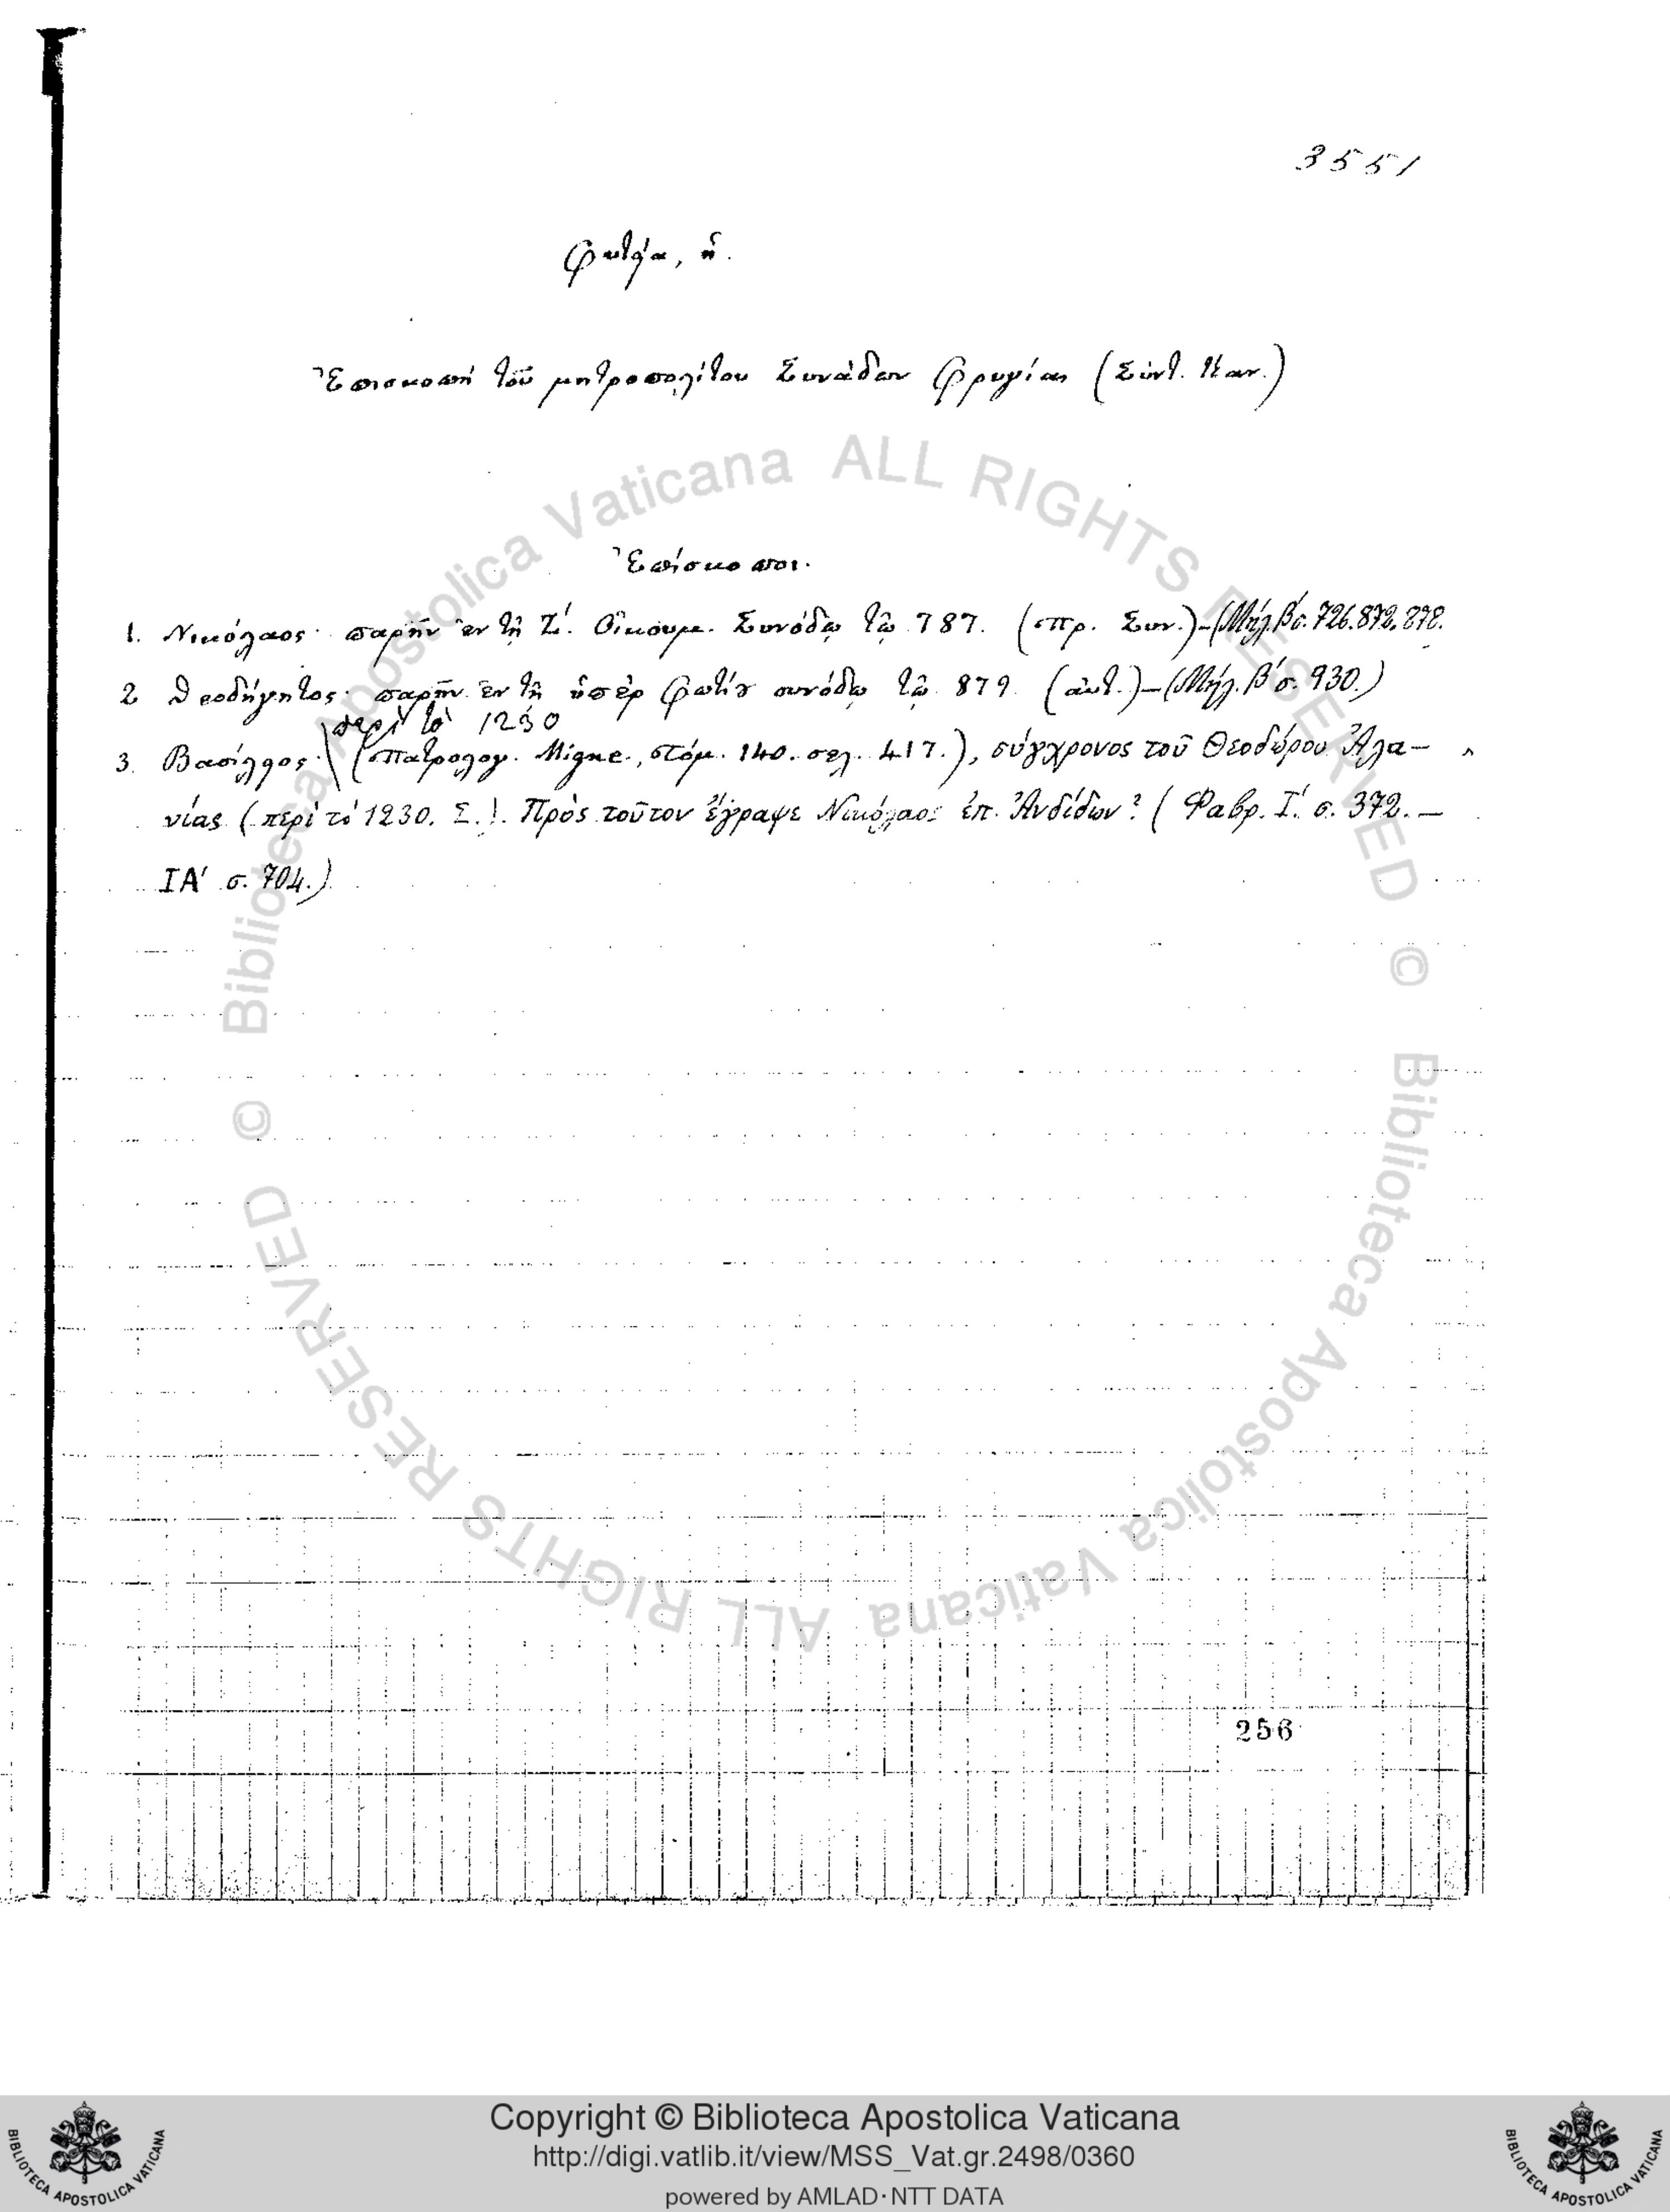 3551
Φυτεία, ἡ.
Ἐπισκοπὴ τοῦ μητροπολίτου Συνάδων Φρυγίας (Σύντ. Καν.)
Ἐπίσκοποι.
1. Νικόλαος· παρῆν ἐν τῇ Ζ΄. Οἰκουμ. Συνόδῳ τῷ 787. (πρ. Συν.)–(Μήλ. β΄ σ. 726. 872. 878.
2 Θεοδήγητος· παρῆν ἐν τῇ ὑπὲρ Φωτίου συνόδῳ τῷ 879. (αὐτ.)–(Μήλ. β΄ σ. 930.)
περὶ τὸ 1230
3. Βασίλειος· (Πατρολογ. Migne., τόμ. 140. σελ. 417.), σύγχρονος τοῦ Θεοδώρου Ἀλα–
νίας (περὶ τὸ 1230. Σ.). Πρὸς τοῦτον ἔγραψε Νικόλαος ἐπ. Ἀνδίδων? (Φαβρ. Ι΄. σ. 372. –
ΙΑ΄ σ. 704.)
256
Biblioteca Apostolica Vaticana ALL RIGHTS RESERVED ©
Biblioteca Apostolica Vaticana ALL RIGHTS RESERVED ©
Copyright © Biblioteca Apostolica Vaticana
http://digi.vatlib.it/view/MSS_Vat.gr.2498/0360
powered by AMLAD·NTT DATA
BIBLIOTECA APOSTOLICA VATICANA
BIBLIOTECA APOSTOLICA VATICANA